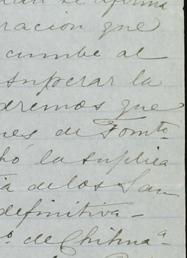 ración que
cumbe al
superar la
dremos que
nes de Fomto
hó la suplica
ia de los San
definitiva
o. de Chihua